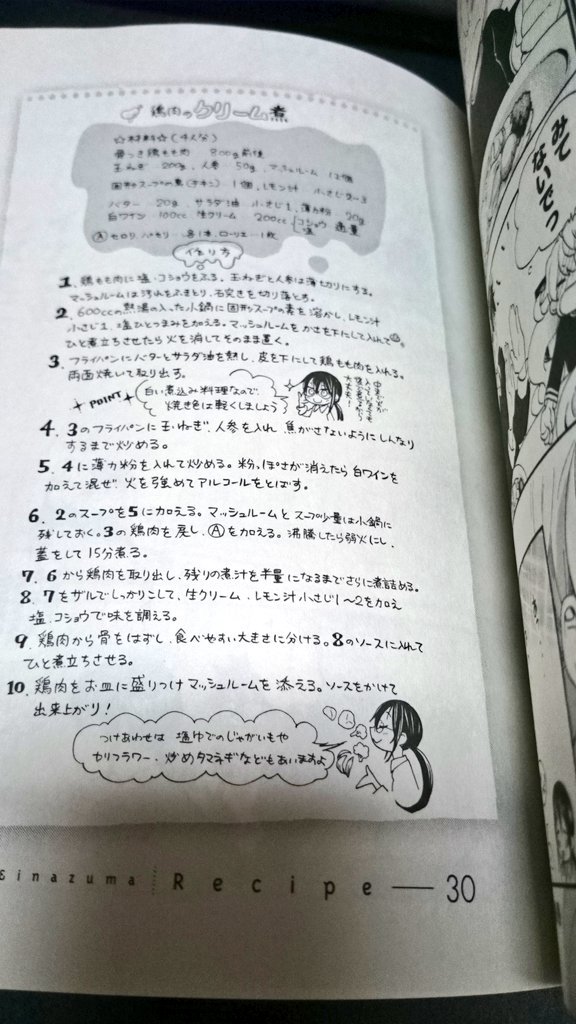 鶏肉のクリーム煮
☆材料☆(4人分)
骨つき鶏もも肉 800g前後
玉ねぎ 200g、人参 50g、マッシュルーム 12個
固形スープの素(チキン) 1個、レモン汁 小さじ2~3
バター 20g、サラダ油 小さじ1、薄力粉 20g
白ワイン 100cc 生クリーム 200cc コショウ 塩 適量
Ⓐセロリ、パセリ…各1本、ローリエ…1枚
作り方
1. 鶏もも肉に塩・コショウをふる。玉ねぎと人参は薄切りにする。
マッシュルームは汚れをふきとり、石突きを切り落とす。
2. 600ccの熱湯の入った小鍋に固形スープの素を溶かし、レモン汁
小さじ1、塩ひとつまみを加える。マッシュルームをかさを下にして入れて
ひと煮立ちさせたら火を消してそのまま置く。
3. フライパンにバターとサラダ油を熱し、皮を下にして鶏もも肉を入れる。
両面焼いて取り出す。
POINT
白い煮込み料理なので、
焼き色は軽くしましょう
4. 3のフライパンに玉ねぎ、人参を入れ焦がさないようにしんなり
するまで炒める。
5. 4に薄力粉を入れて炒める。粉っぽさが消えたら白ワインを
加えて混ぜ火を強めてアルコールをとばす。
6. 2のスープを5に加える。マッシュルームとスープ少量は小鍋に
残しておく。3の鶏肉を戻し、Ⓐを加える。沸騰したら弱火にし、
蓋をして15分煮る。
7. 6から鶏肉を取り出し、残りの煮汁を半量になるまでさらに煮詰める。
8. 7をザルでしっかりこして、生クリーム、レモン汁小さじ1~2を加え
塩、コショウで味を調える。
9. 鶏肉から骨をはずし、食べやすい大きさに分ける。8のソースに入れて
ひと煮立ちさせる。
10. 鶏肉をお皿に盛りつけマッシュルームを添える。ソースをかけて
出来上がり!
つけあわせは 塩ゆでのじゃがいもや
カリフラワー、炒めタマネギなどもあいますよ
inazuma Recipe — 30
みて
ないでっ